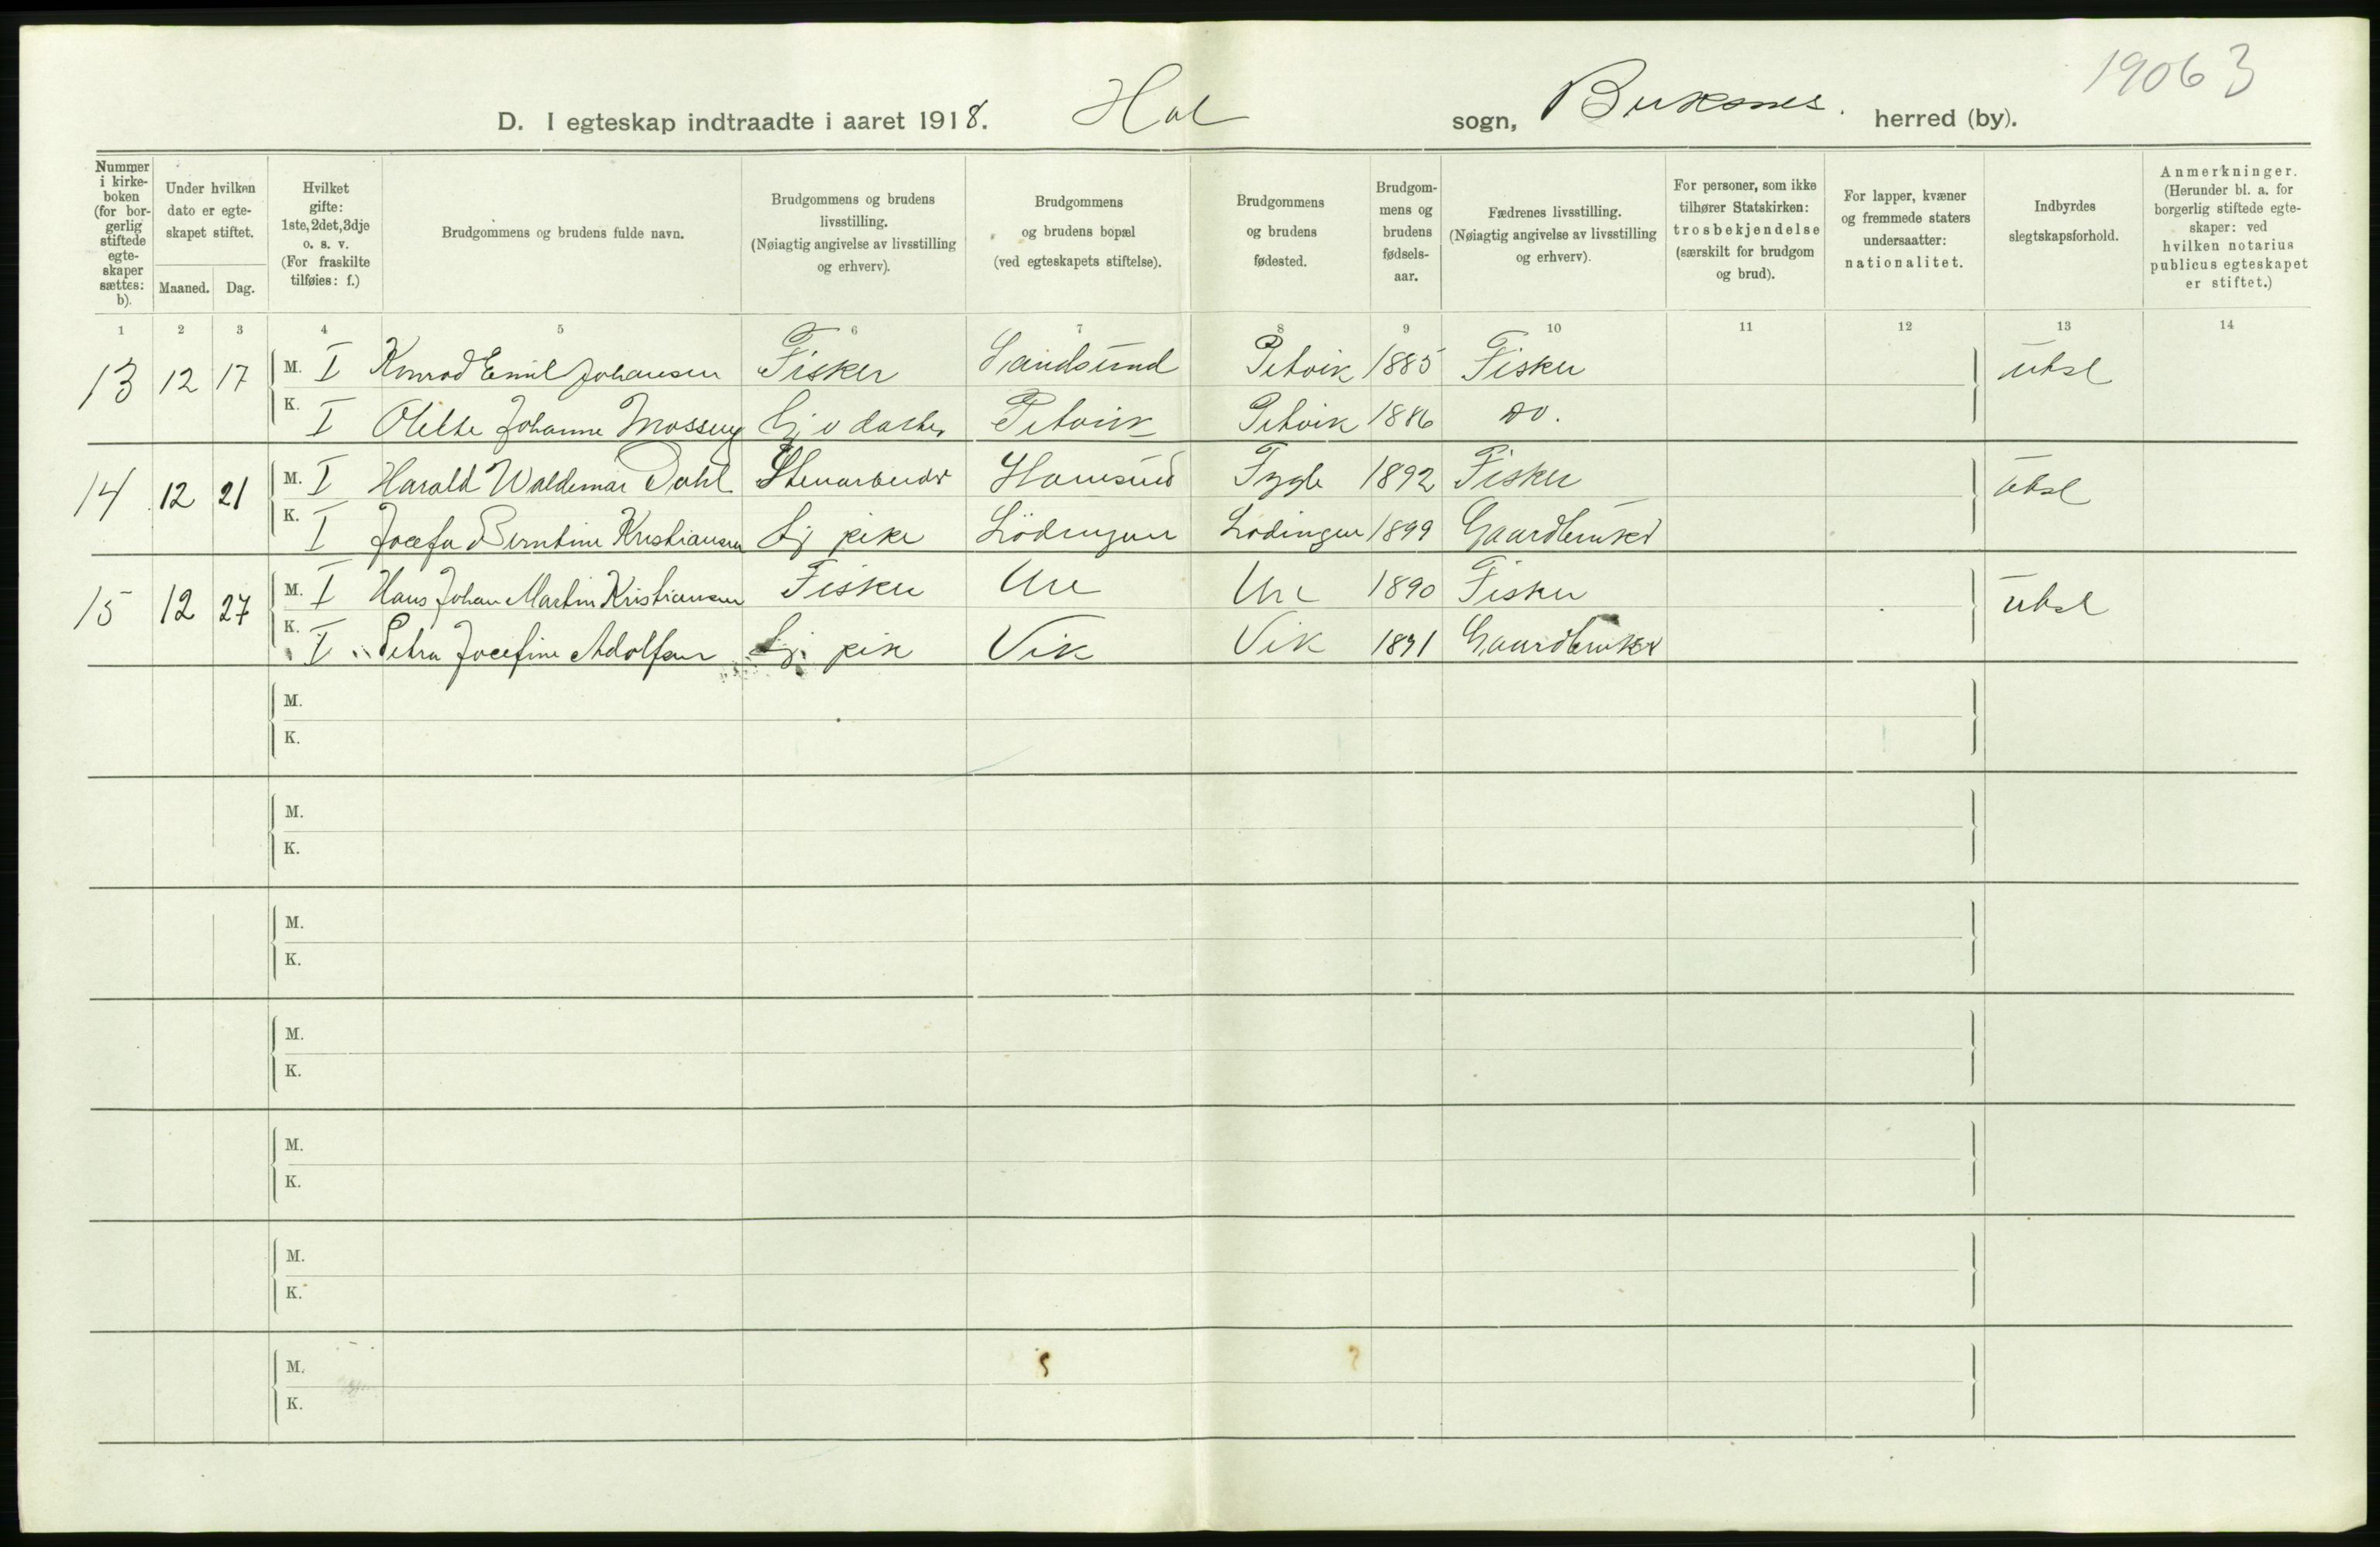 19063
D. I egteskap indtraadte i aaret 1918. Hol sogn, Buksnes. herred (by).
Nummer i kirkeboken (for borgerlig stiftede egteskaper sættes: b).
Under hvilken dato er egteskapet stiftet.
Maaned. Dag.
Hvilket gifte: 1ste, 2det, 3dje o. s. v. (For fraskilte tilføies: f.)
Brudgommens og brudens fulde navn.
Brudgommens og brudens livsstilling. (Nøiagtig angivelse av livsstilling og erhverv).
Brudgommens og brudens bopæl (ved egteskapets stiftelse).
Brudgommens og brudens fødested.
Brudgommens og brudens fødselsaar.
Fædrenes livsstilling. (Nøiagtig angivelse av livsstilling og erhverv).
For personer, som ikke tilhører Statskirken: trosbekjendelse (særskilt for brudgom og brud).
For lapper, kvæner og fremmede staters undersaatter: nationalitet.
Indbyrdes slegtskapsforhold.
Anmerkninger. (Herunder bl. a. for borgerlig stiftede egteskaper: ved hvilken notarius publicus egteskapet er stiftet.)
1 2 3 4 5 6 7 8 9 10 11 12 13 14
13 12 17 M. I Konrad Emil Johansen Fisker Sandsund Petvik 1885 Fisker ubsl
K. I Olette Johanne Mossevg Hj v datter Petvik Petvik 1886 do.
14 12 21 M. I Harald Waldemar Dahl Stenarbeider Hamsund Fygle 1892 Fisker ubsl
K. I Josefa Berntine Kristiansen Hj pike Lödingen Lödingen 1899 Gaardbruker
15 12 27 M. I Hans Johan Martin Kristiansen Fisker Ure Ure 1890 Fisker ubsl
K. I Petra Josefine Adolfsen Hj. pike Vik Vik 1891 Gaardbruker
M.
K.
M.
K.
M.
K.
M.
K.
M.
K.
M.
K.
M.
K.